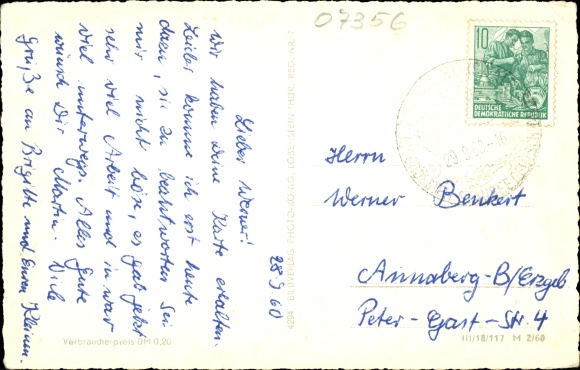 07356
28.9.60
Lieber Werner!
Wir haben Deine Karte erhalten.
Leider komme ich erst heute
dazu, sie zu beantworten. Sei
mir nicht böse, es gab jetzt
sehr viel Arbeit und ich war
viel unterwegs. Alles Gute
wünscht Dir Martin. Viele
Grüße an Brigitte und Euren Kleinen.
Verbraucherpreis DM 0,20
4294 BILDVERLAG PHOTO-KÖNIG, LOBENSTEIN THÜR. REG. NR. 7
10
DEUTSCHE
DEMOKRATISCHE REPUBLIK
Herrn
Werner Benkert
Annaberg-B/Erzgeb
Peter-Gast-Str. 4
III/18/117 M 2/60